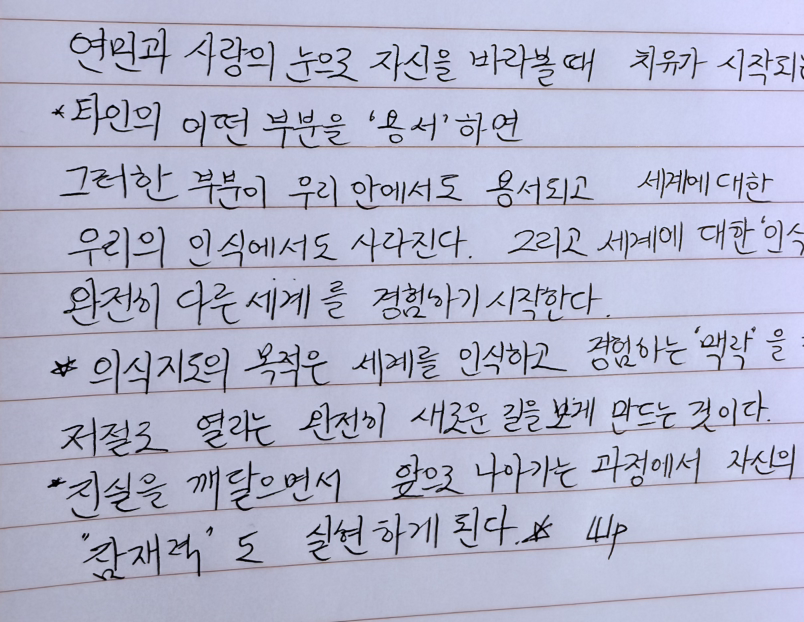 연민과 사랑의 눈으로 자신을 바라볼 때 치유가 시작되는
*타인의 어떤 부분을 '용서'하면
그러한 부분이 우리 안에서도 용서되고 세계에 대한
우리의 인식에서도 사라진다. 그리고 세계에 대한 '인식
완전히 다른 세계를 경험하기 시작한다.
* 의식지도의 목적은 세계를 인식하고 경험하는 '맥락'을
저절로 열리는 완전히 새로운 길을 보게 만드는 것이다.
*진실을 깨달으면서 앞으로 나아가는 과정에서 자신의
"잠재력"도 실현하게 된다.* 44p